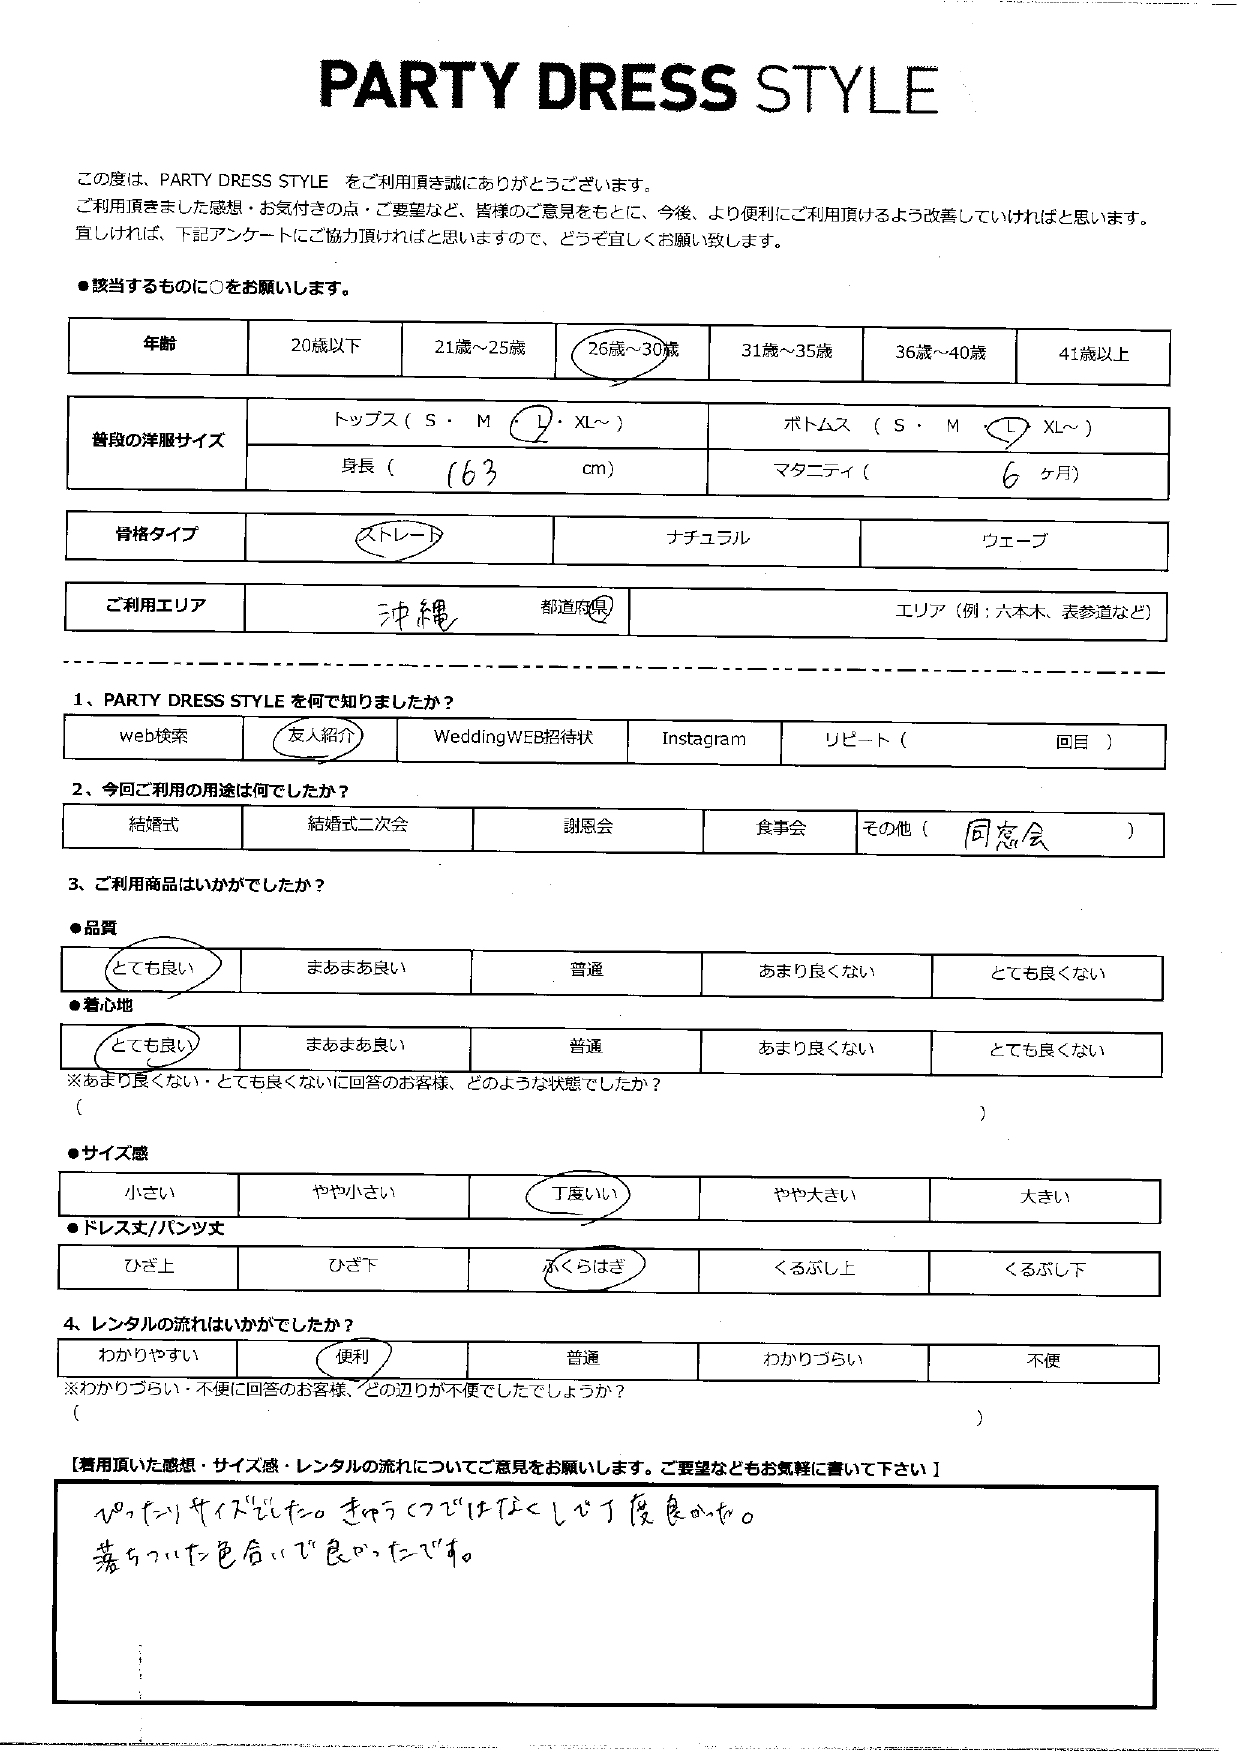 PARTY DRESS STYLE
この度は、PARTY DRESS STYLE をご利用頂き誠にありがとうございます。
ご利用頂きました感想・お気付きの点・ご要望など、皆様のご意見をもとに、今後、より便利にご利用頂けるよう改善していければと思います。
宜しければ、下記アンケートにご協力頂ければと思いますので、どうぞ宜しくお願い致します。
●該当するものに○をお願いします。
年齢 20歳以下 21歳～25歳 26歳～30歳 31歳～35歳 36歳～40歳 41歳以上
普段の洋服サイズ
トップス ( S ・ M ・ L ・ XL～ ) ボトムス ( S ・ M ・ L ・ XL～ )
身長 ( 163 cm) マタニティ ( 6 ヶ月)
骨格タイプ ストレート ナチュラル ウェーブ
ご利用エリア 沖縄 都道府県 エリア（例；六本木、表参道など）
1、PARTY DRESS STYLE を何で知りましたか？
web検索 友人紹介 WeddingWEB招待状 Instagram リピート ( 回目 )
2、今回ご利用の用途は何でしたか？
結婚式 結婚式二次会 謝恩会 食事会 その他 ( 同窓会 )
3、ご利用商品はいかがでしたか？
●品質
とても良い まあまあ良い 普通 あまり良くない とても良くない
●着心地
とても良い まあまあ良い 普通 あまり良くない とても良くない
※あまり良くない・とても良くないに回答のお客様、どのような状態でしたか？
( )
●サイズ感
小さい やや小さい 丁度いい やや大きい 大きい
●ドレス丈/パンツ丈
ひざ上 ひざ下 ふくらはぎ くるぶし上 くるぶし下
4、レンタルの流れはいかがでしたか？
わかりやすい 便利 普通 わかりづらい 不便
※わかりづらい・不便に回答のお客様、どの辺りが不便でしたでしょうか？
( )
【着用頂いた感想・サイズ感・レンタルの流れについてご意見をお願いします。ご要望などもお気軽に書いて下さい 】
ぴったりサイズでした。きゅうくつではなくして丁度良かった。
落ちついた色合いで良かったです。